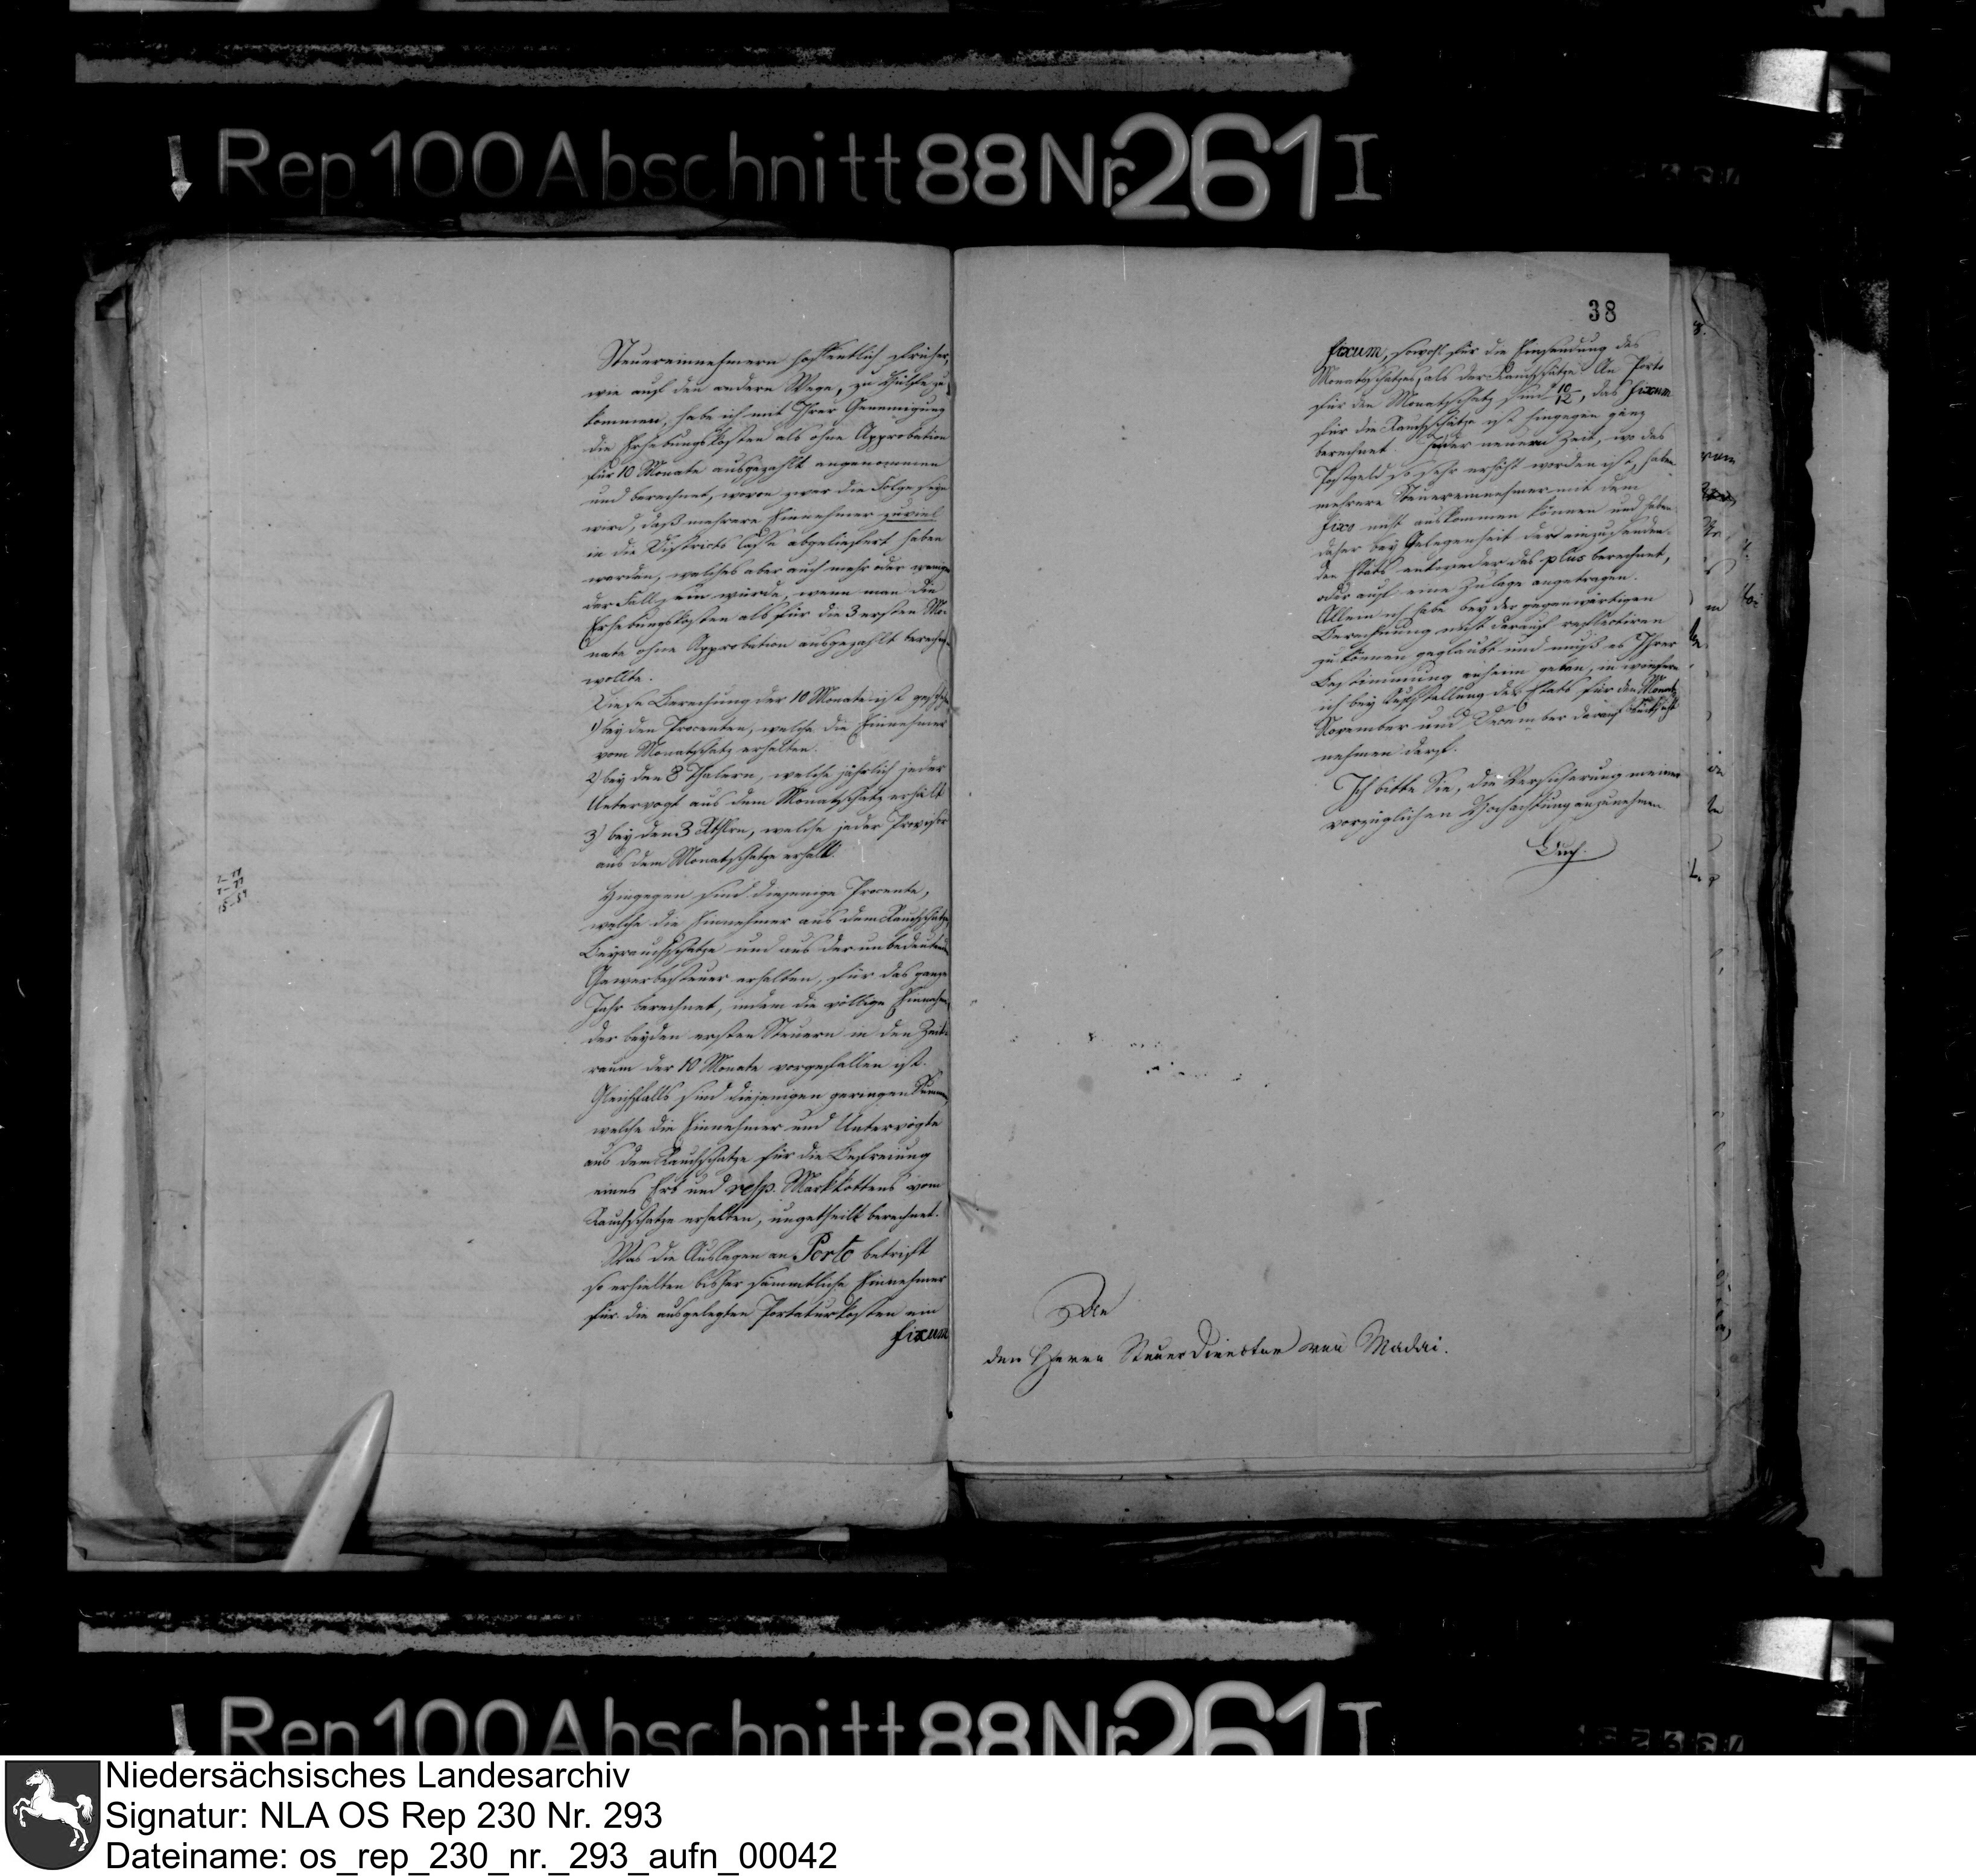 Rep 100 Abschnitt 88 Nr. 261 I
Steuereinnehmern hoffentlich früher,
wie auf den andern Wege, zu Hülfe zu
kommen, habe ich mit Ihrer Genemigung
die Erhebungskosten als ohne Approbation
für 10 Monate ausgezahlt angenommen
und berechnet, wovon zwar die Folge seyn
wird, daß mehrere Einnehmer zuviel
in die Districts Casse abgeliefert haben
werden, welches aber auch mehr oder weniger
der Fall seyn würde, wenn man die
Erhebungskosten als für die 3 ersten Mo-
nate ohne Approbation ausgezahlt berechnen
wollte.
Diese Berechung der 10 Monate ist geschehen
1) bey den Procenten, welche die Einnehmer
vom Monatschatz erhalten.
2) bey den 8 Thalern, welche jährlich jeder
Untervogt aus dem Monatschatz erhält
3) bey den 3 Rthlrn, welche jeder Provisor
aus dem Monatschatze erhält.
Hingegen sind diejenige Procente,
welche die Einnehmer aus dem Rauchschatze
Beyrauchschatze und aus der unbedeutenden
Gewerbesteuer erhalten, für das ganze
Jahr berechnet, indem die völlige Einnahme
der beyden ersten Steuern in den Zeit-
raum der 10 Monate vorgefallen ist.
Gleichfalls sind diejenigen geringen Summen,
welche die Einnehmer und Untervögte
aus dem Rauchschatze für die Befreiung
eines Erb und resp. Markkottens vom
Rauchschatze erhalten, ungetheilt berechnet.
Was die Auslagen an Porto betrifft
so erhielten bisher sämmtliche Einnehmer
für die ausgelegten Portaturkosten ein
fixum
38
fixum, sowohl für die Einsendung des
Monatschatzes, als der Rauchschätze. An Porto
für den Monatschatz sind 10/12, das fixum
für die Rauchschätze ist hingegen ganz
berechnet. In der neuern Zeit, wo das
Postgeld so sehr erhöht worden ist, haben
mehrere Steuereinnehmer mit dem
fixo nicht auskommen können und haben
daher bey Gelegenheit der einzusenden-
den Etats entweder das plus berechnet,
oder auf eine Zulage angetragen.
Allein ich habe bey der gegenwärtigen
Berechnung nicht darauf reflectiren
zu können geglaubt und muß es Ihrer
Bestimmung anheim geben, in wiefern
ich bey Aufstellung des Etats für den Monat
November und December darauf Rücksicht
nehmen darf.
Ich bitte Sie, die Versicherung meiner
vorzüglichen Hochachtung anzunehmen.
An
den Herrn Steuer Director von Madai.
Rep 100 Abschnitt 88 Nr. 261 I
Niedersächsisches Landesarchiv
Signatur: NLA OS Rep 230 Nr. 293
Dateiname: os_rep_230_nr._293_aufn_00042